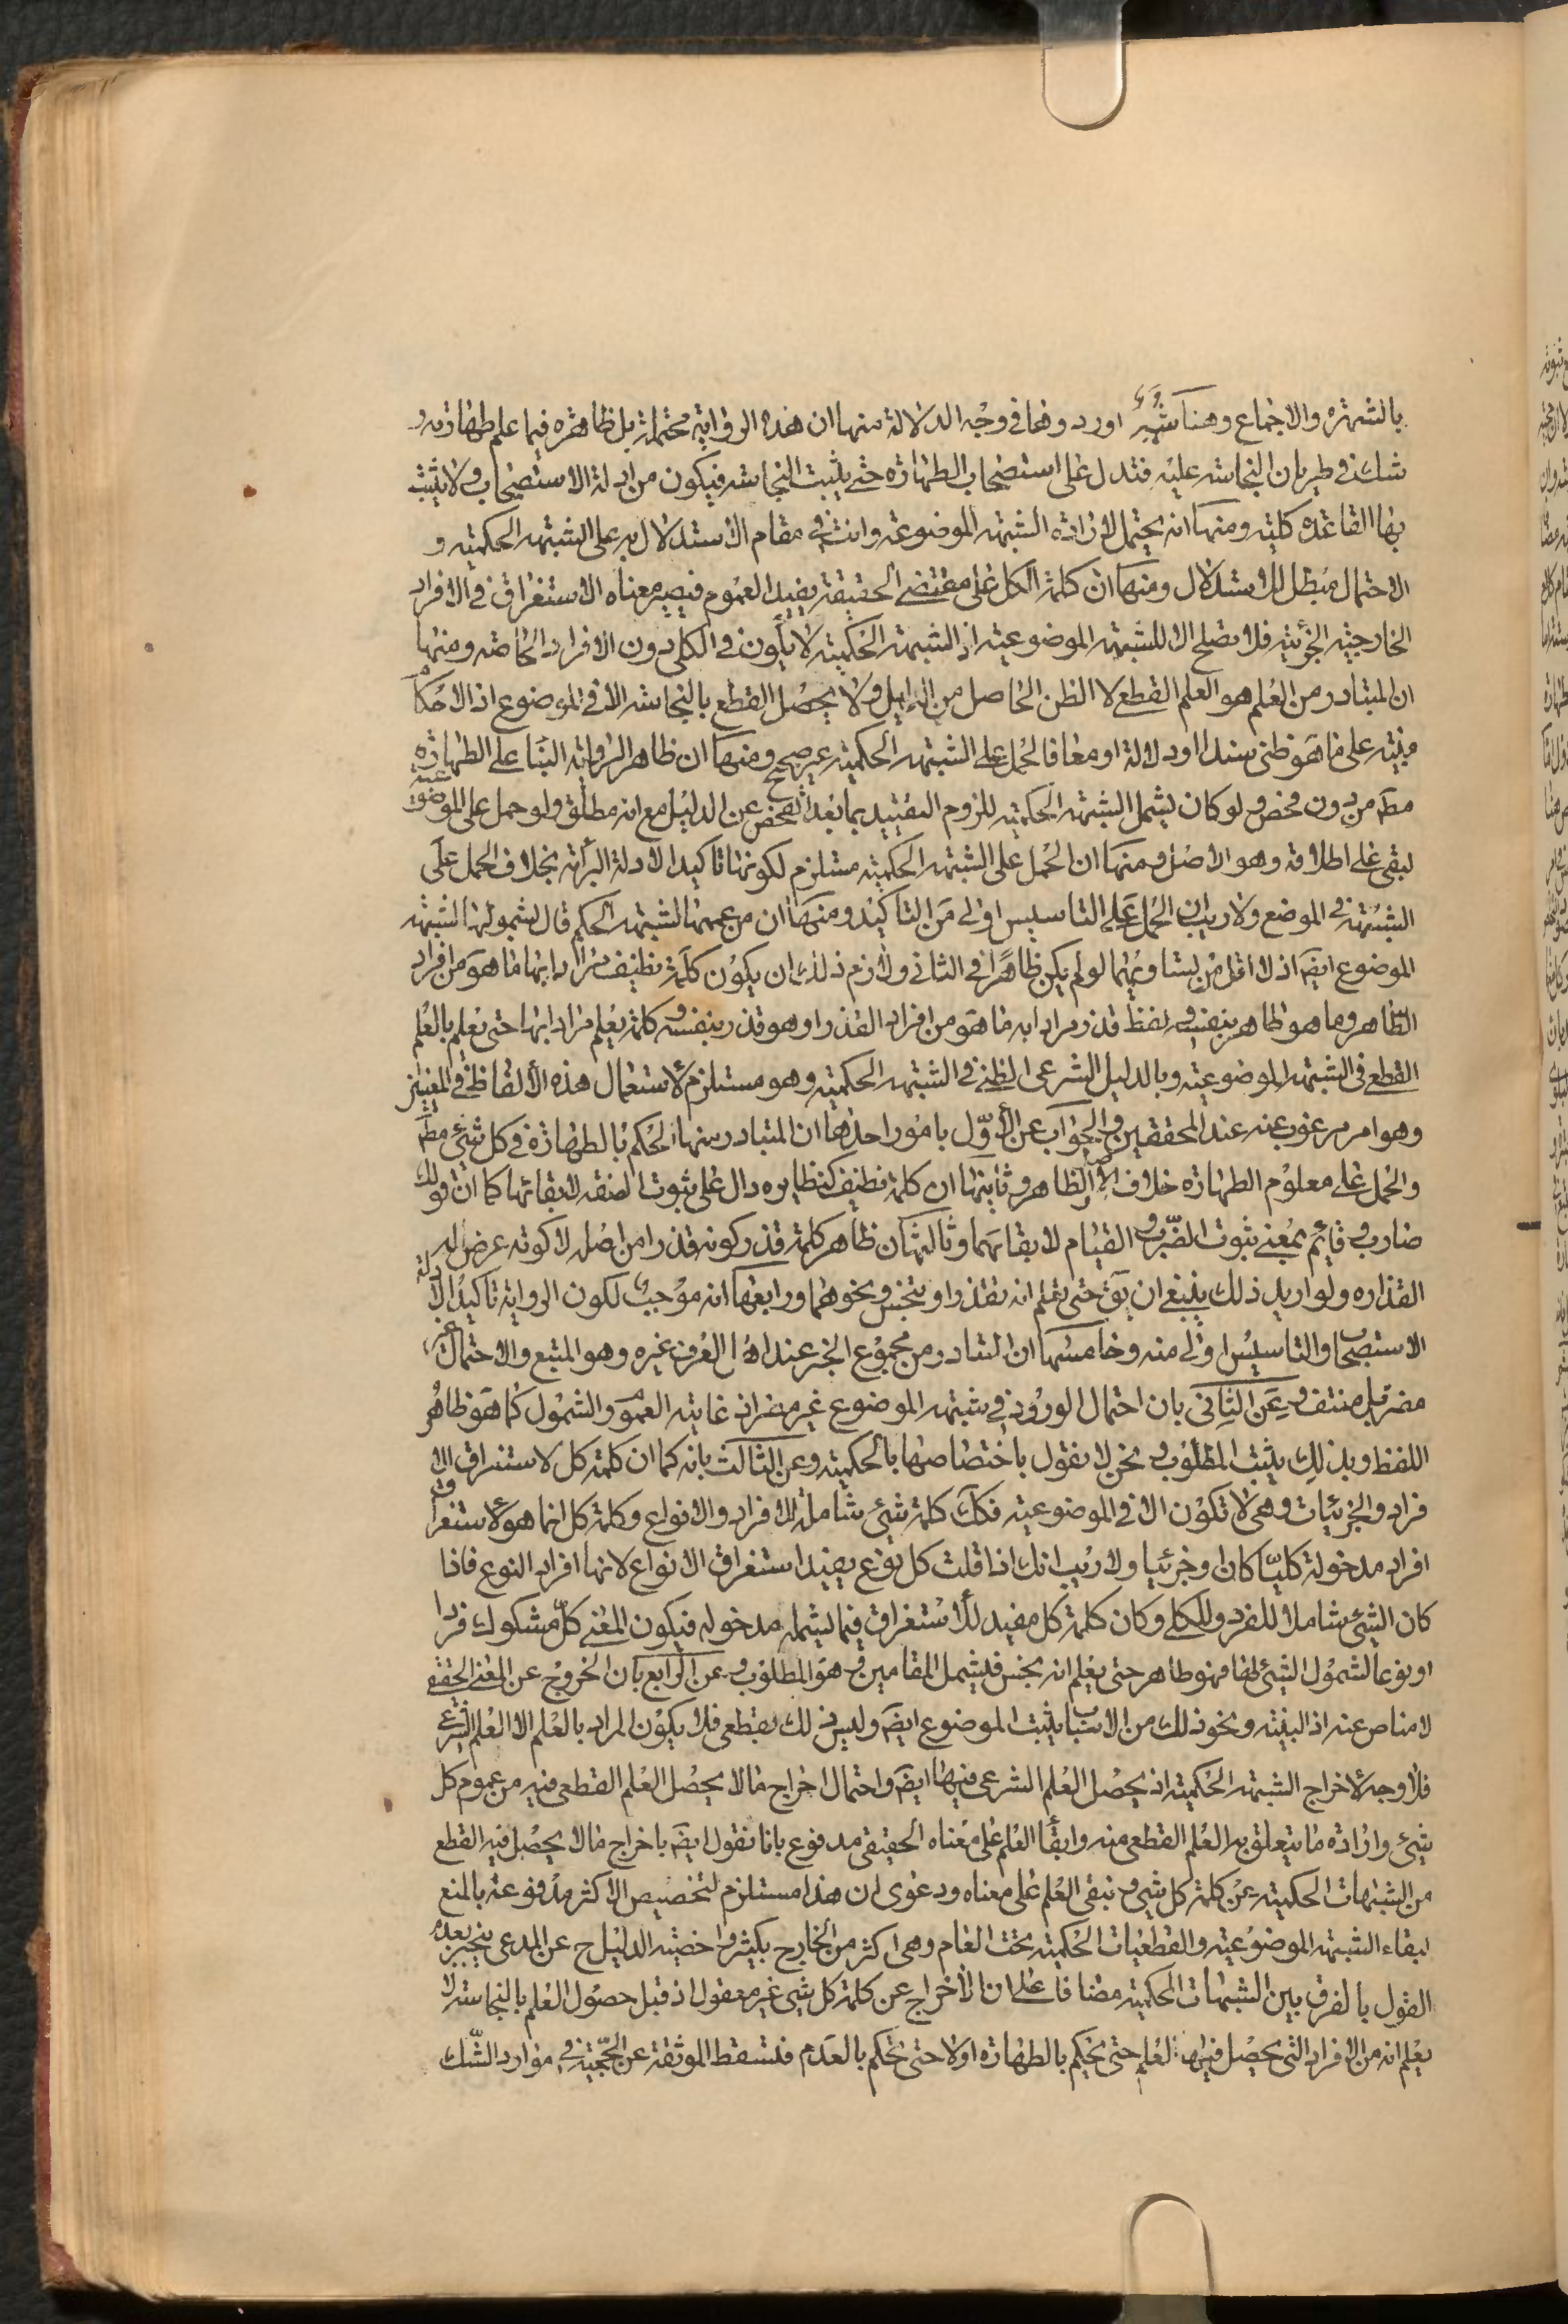 بالشهرة والاجماع وهنا شبه اوردوها فى وجه الدلالة منها ان هذه الرواية محتملة بل ظاهرة فيما علم طهارته و
شك فى طريان النجاسة عليه فتدل على استصحاب الطهارة حتى يثبت النجاسة فيكون من ادلة الاستصحاب ولا يثبت
بها القاعدة كلية ومنها انه يحتمل لارادة الشبهة الموضوعة وانت فى مقام الاستدلال به على الشبهة الحكمية و
الاحتمال مبطل للاستدلال ومنها ان كلمة الكل على مقتضى الحقيقة يفيد العموم فيصير معناه الاستغراق فى الافراد
الخارجية الجزئية فلا تصلح الا للشبهة الموضوعية اذ الشبهة الحكمية لا يكون فى الكلى دون الافراد الخاصة ومنها
ان المتبادر من العلم هو العلم القطع لا الظن الحاصل من الدليل ولا يحصل القطع بالنجاسة الا فى الموضوع اذ الاحكام
مبنية على ما هو ظنى سندا او دلالة او معا فالحمل على الشبهة الحكمية غير صحيح ومنها ان ظاهر الرواية البناء على الطهارة
مطم من دون فحص ولو كان يشمل الشبهة الحكمية للزوم التقييد بما بعد الفحص عن الدليل مع انه مطلق ولو حمل على الموضوعية
لبقى على اطلاقه وهو الاصل ومنها ان الحمل على الشبهة الحكمية مستلزم لكونها تاكيدا لادلة البرائة بخلاف الحمل على
الشبهة فى الموضع ولا ريب ان الحمل على التاسيس اولى من التاكيد ومنها ان من عممها لشبهة الحكم قال بشمولها لشبهة
الموضوع ايضم اذ لا اقل من تساويهما لو لم يكن ظاهرا فى الثانى ولازم ذلك ان يكون كلمة نظيف مرادا بها ما هو من افراد
الطاهر وما هو طاهر بنفسه ولفظ قذر مرادا به ما هو من افراد القذر او هو قذر بنفسه وكلمة يعلم مرادا بها حتى يعلم بالعلم
القطع فى الشبهة الموضوعية وبالدليل الشرعى الظنى فى الشبهة الحكمية وهو مستلزم لاستعمال هذه الالفاظ فى المعنيين
وهو امر مرغوب عنه عند المحققين والجواب عن الاول بامور احدها ان المتبادر منها الحكم بالطهارة فى كل شئ مطم
والحمل على معلوم الطهارة خلاف الظاهر وثانيها ان كلمة نظيف كنظايره دال على ثبوت الصفة لا بقائها كما ان قولك
ضارب وقائم بمعنى ثبوت الضرب والقيام لا بقائهما وثالثها ان ظاهر كلمة قذر كونه قذرا من اصله لا كونه عرض له
القذارة ولو اريد ذلك ينبغى ان يق حتى تعلم انه تقذر او تنجس ونحوهما ورابعها انه موجب لكون الرواية تاكيدا لادلة
الاستصحاب والتاسيس اولى منه وخامسها ان المتبادر من مجموع الخبر عند اهل العرف غيره وهو المتبع والاحتمال غير
مضر بل منتف وعن الثانى بان احتمال الورود فى شبهة الموضوع غير مضر اذ غايته العموم والشمول كما هو ظاهر
اللفظ وبذلك يثبت المطلوب ونحن لا نقول باختصاصها بالحكمية وعن الثالث بانه كما ان كلمة كل لاستغراق الا
فراد والجزئيات وهى لا تكون الا فى الموضوعية فكك كلمة شئ شاملة للافراد والانواع وكلمة كل انما هو لاستغراق
افراد مدخولة كليا كان او جزئيا ولا ريب انك اذا قلت كل نوع يفيد استغراق الانواع لانها افراد النوع فاذا
كان الشئ شاملا للفرد وللكلى وكان كلمة كل مفيد للاستغراق فيما يشمله مدخوله فيكون المعنى كل مشكوك فردا
او نوعا لشمول الشئ لهما فهو طاهر حتى يعلم انه نجس فليشمل المقامين وهو المطلوب وعن الرابع بان الخروج عن المعنى الحقيقى
لا مناص عنه اذ البينة ونحو ذلك من الاسباب يثبت الموضوع ايضم وليس ذلك بقطعى فلا يكون المراد بالعلم الا العلم الشرعى
فلا وجه لاخراج الشبهة الحكمية اذ يحصل العلم الشرعى فيها ايضم واحتمال اخراج ما لا يحصل العلم القطعى فيه من عموم كل
شئ وارادة ما يتعلق به العلم القطعى منه وابقاء العلم على معناه الحقيقى مدفوع بانا نقول ايضم باخراج ما لا يحصل فيه القطع
من الشبهات الحكمية عن كلمة كل شئ ونبقى العلم على معناه ودعوى ان هذا مستلزم لتخصيص الاكثر مدفوعة بالمنع
لبقاء الشبهة الموضوعية والقطعيات الحكمية تحت العام وهى اكثر من الخارج بكثير واخصية الدليل ح عن المدعى ينجبر بعدم
القول بالفرق بين الشبهات الحكمية مضافا على ان الاخراج عن كلمة كل شئ غير معقول اذ قبل حصول العلم بالنجاسة لا
يعلم انه من الافراد التى يحصل فيها العلم حتى يحكم بالطهارة اولا حتى يحكم بالعدم فتسقط الموثقة عن الحجية فى موارد الشك